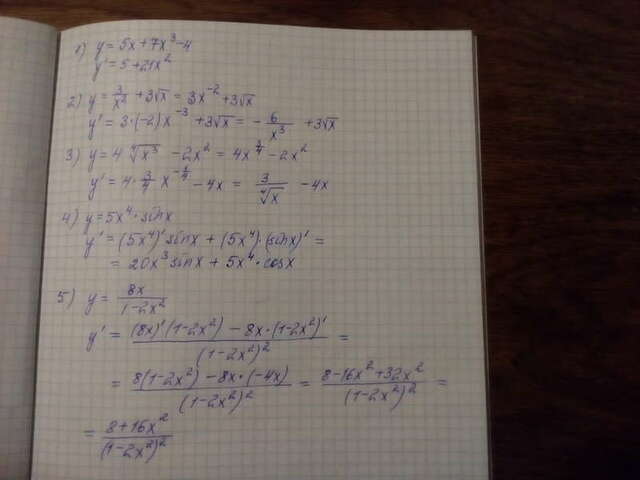 1) y = 5x + 7x³ - 4
y' = 5 + 21x²
2) y = 3/x² + 3√x = 3x⁻² + 3√x
y' = 3·(-2)x⁻³ + 3√x = - 6/x³ + 3√x
3) y = 4 ⁴√x³ - 2x² = 4x^(3/4) - 2x²
y' = 4·3/4 x^(-1/4) - 4x = 3/⁴√x - 4x
4) y = 5x⁴·sinx
y' = (5x⁴)' sinx + (5x⁴)·(sinx)' =
= 20x³ sinx + 5x⁴·cosx
5) y = 8x/(1-2x²)
y' = ((8x)'(1-2x²) - 8x·(1-2x²)')/(1-2x²)² =
= (8(1-2x²) - 8x·(-4x))/(1-2x²)² = (8-16x²+32x²)/(1-2x²)² =
= (8+16x²)/(1-2x²)²